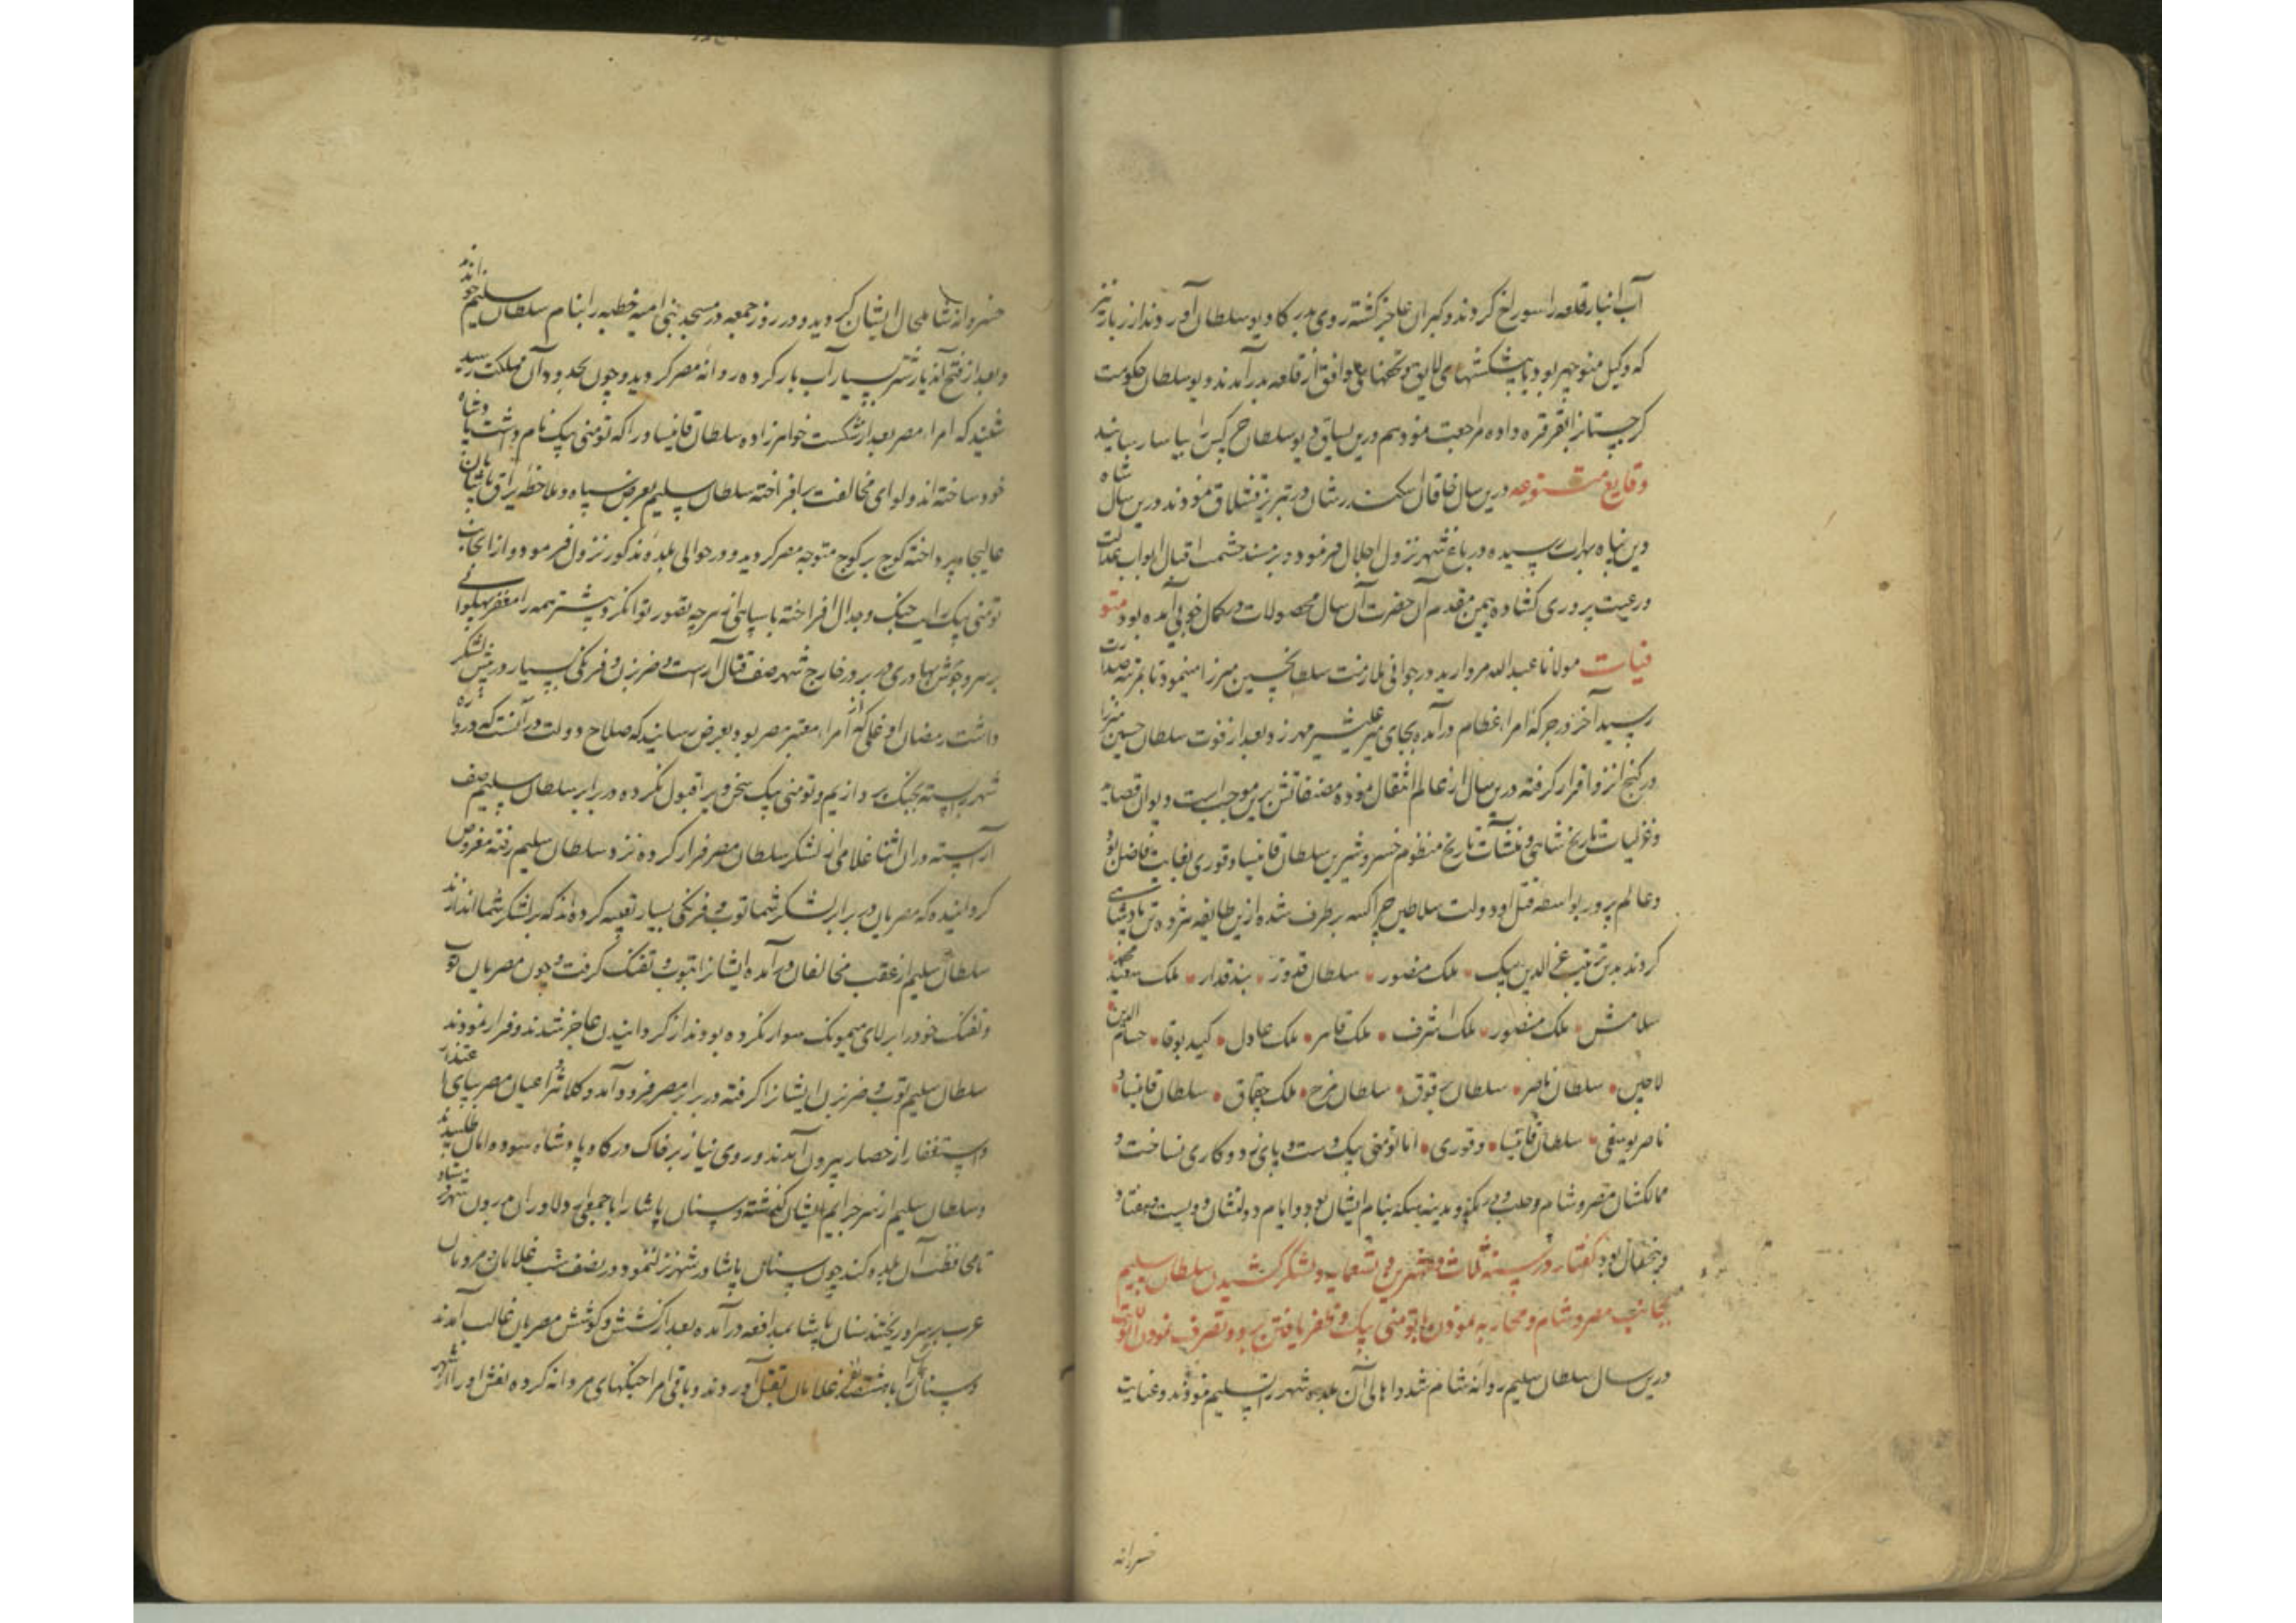 آب انبار قلعه را سوراخ کردند و کبران عاجز کشته روی بدرکاه دیو سلطان آوردند از زبان
که وکیل منوچهر بود با پیشکشهای لایق و تحفهای موافق از قلعه بدر آمدند دیو سلطان حکومت
کرجستانرا بقرقره داده مراجعت نمود هم درین یساق دیو سلطان کس را بیاسا رسانید
وقایع متنوعه درین سال خاقان اسکندرشان در تبریز قشلاق نمودند درین سال شاه
دین پناه بهرات رسیده در باغ شهر نزول اجلال فرمود و بر مسند حشمت اقبال ابواب عدالت
و رعیت پروری کشاده بیمن مقدم آن حضرت آن سال محصولات در کمال خوبی آمده بود متو
فیات مولانا عبدالله مروارید در جوانی ملازمت سلطان حسین میرزا مینمود تا بمرتبه صدارت
رسید آخر در جرکه امراء عظام درآمده بجای میر علیشیر مهر زد و بعد از فوت سلطان حسین میرزا
در کنج انزوا قرار گرفته درین سال از عالم انتقال نموده مصنفاتش برین موجب است دیوان قصاید
و غزلیات تاریخ شاهی و منشآت تاریخ منظوم خسرو شیرین سلطان قانیساو قوری بغایت فاضل بود
و عالم پرور بواسطه قتل او دولت سلاطین چراکسه بر طرف شده ازین طایفه تن پادشاهی
کردند بدین ترتیب عزالدین بیک ملک منصور سلطان قدوز بندقدار ملک سعید محمد
سلامش ملک منصور ملک اشرف ملک ناصر ملک عادل کیدبوقا حسام الدین
لاجین سلطان ناصر سلطان برقوق سلطان فرج ملک چقماق سلطان قانیسا
ناصر یوسفی سلطان قایتبا و قوری اما تومنی بیک دست و پای زد و کاری نساخت و
ممالکشان مصر و شام و حلب و در مکه و مدینه سکه بنام ایشان بود و ایام دولتشان دویست و هفتاد
و پنج سال بود گفتار در سنه ثلاث و عشرین و تسعمایه و لشکر کشیدن سلطان سلیم
بجانب مصر و شام و محاربه نمودن با تومنی بیک و ظفر یافتن برو و تصرف نمودن
درین سال سلطان سلیم روانه شام شد و اهالی آن بلده شهر را تسلیم نمودند و عنایت
خسروانه
خسروانه شامل حال ایشان کردید و در روز جمعه در مسجد بنی امیه خطبه را بنام سلطان سلیم خواندند
و بعد از فتح آن دیار شتر بسیار آب بار کرده روانه مصر کردید و چون بحدود آن مملکت رسید
شنید که امراء مصر بعد از شکست خواهرزاده سلطان قانیساو را که تومنی بیک نام داشت پادشاه
خود ساخته اند و لوای مخالفت برافراخته سلطان سلیم بعرض سپاه و ملاحظه یراق
عالیجاه پرداخته کوچ بر کوچ متوجه مصر کردید و در حوالی بلده مذکور نزول فرمود و از آنجانب
تومنی بیک رایت جنک و جدال افراخته با سپاهی از هرچه تصور توان کرد بیشتر همه را مغفر پهلوانی
بر سر و جوشن بهادری در بر در خارج شهر صف قتال آراست و ضربزن و فرنکی بسیار در پیش لشکر
داشت رمضان اوغلی که از امراء معتبر مصر بود بعرض رسانید که صلاح دولت در آنست که دروازه
شهر را بسته بجنک پردازیم و تومنی بیک سخن ویرا قبول نکرده در برابر سلطان سلیم صف
آراسته در آن اثنا غلامی از لشکر سلطان مصر فرار کرده نزد سلطان سلیم رفته معروض
کردانیده که مصریان در برابر لشکر شما توپ و فرنکی بسیار تعبیه کرده اند که بر لشکر شما اندازند
سلطان سلیم از عقب مخالفان درآمده ایشانرا بتوپ و تفنک گرفت و چون مصریان توپ
و تفنک خود را بر بالای سوار نکرده بودند از کردانیدن عاجز شدند و فرار نمودند
سلطان سلیم توپ و ضربزن ایشانرا گرفته در برابر مصر فرود آمد و کلانتر و اعیان مصر بپای اعتذار
و استغفار از حصار بیرون آمدند و روی نیاز بر خاک درکاه پادشاه سوده امان طلبیدند
و سلطان سلیم از سر جرایم ایشان گذشته سنان پاشا را با جمعی از دلاوران بدرون شهر فرستاد
تا محافظت آن بلده کند چون سنان پاشا در شهر نزول نمود در نصف شب غلامان و مردمان
عرب بر سر او ریختند سنان پاشا بمدافعه درآمده بعد از کشش و کوشش مصریان غالب آمدند
و سنان را با هشتصد نفر غلامان بقتل آوردند و باقی امرا جنکهای مردانه کرده نعش او را از شهر